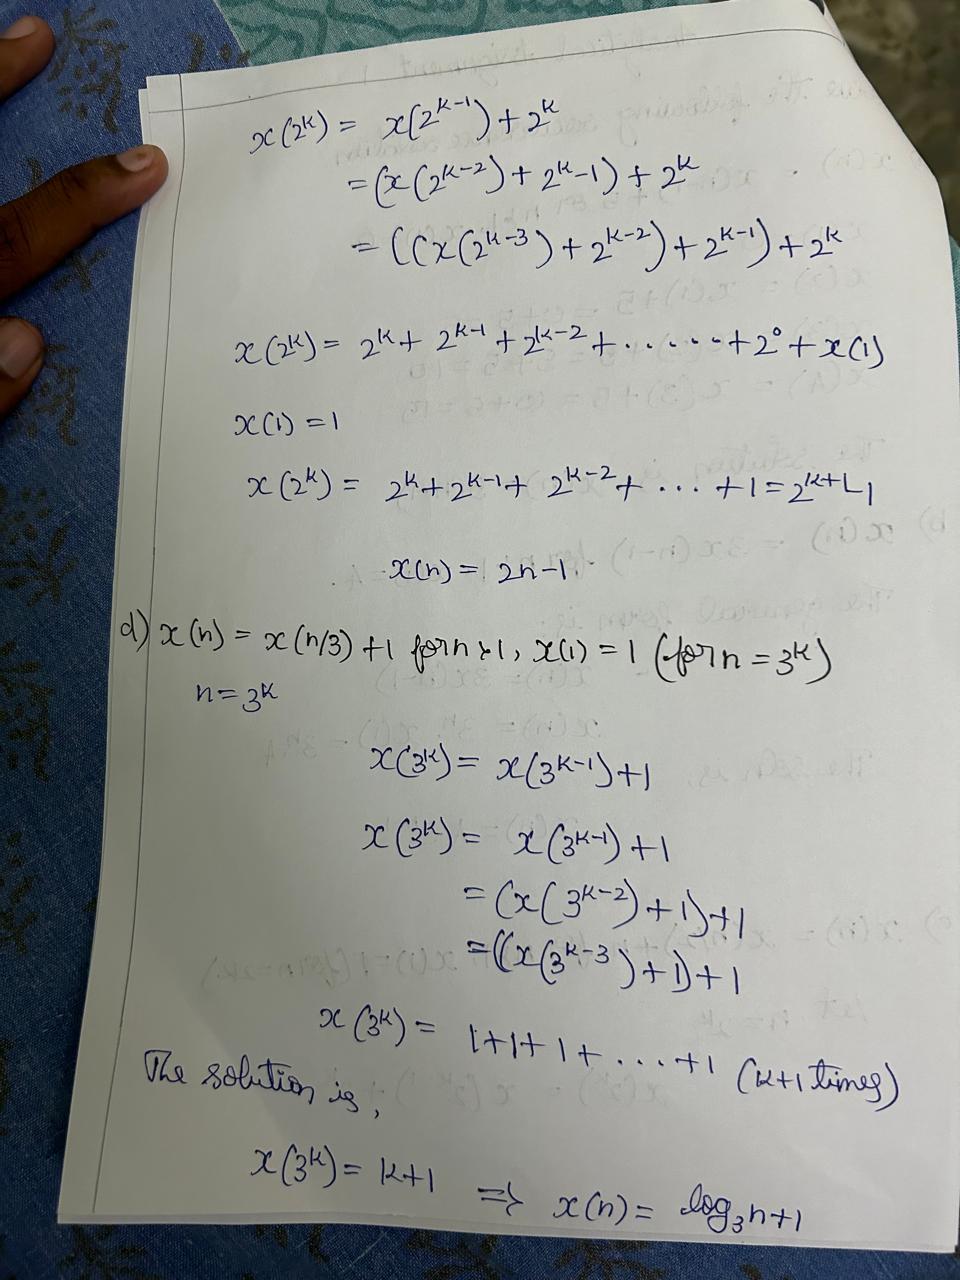 x(2^k) = x(2^{k-1}) + 2^k
= (x(2^{k-2}) + 2^k-1) + 2^k
= ((x(2^{k-3}) + 2^{k-2}) + 2^{k-1}) + 2^k
x(2^k) = 2^k + 2^{k-1} + 2^{k-2} + ...... + 2^0 + x(1)
x(1) = 1
x(2^k) = 2^k + 2^{k-1} + 2^{k-2} + ... + 1 = 2^{k+1}-1
x(n) = 2n-1.
d) x(n) = x(n/3) + 1 for n>1, x(1) = 1 (for n = 3^k)
n = 3^k
x(3^k) = x(3^{k-1}) + 1
x(3^k) = x(3^{k-1}) + 1
= (x(3^{k-2}) + 1) + 1
= ((x(3^{k-3}) + 1) + 1
x(3^k) = 1+1+1+...+1 (k+1 times)
The solution is,
x(3^k) = k+1 ⇒ x(n) = log_3 n+1